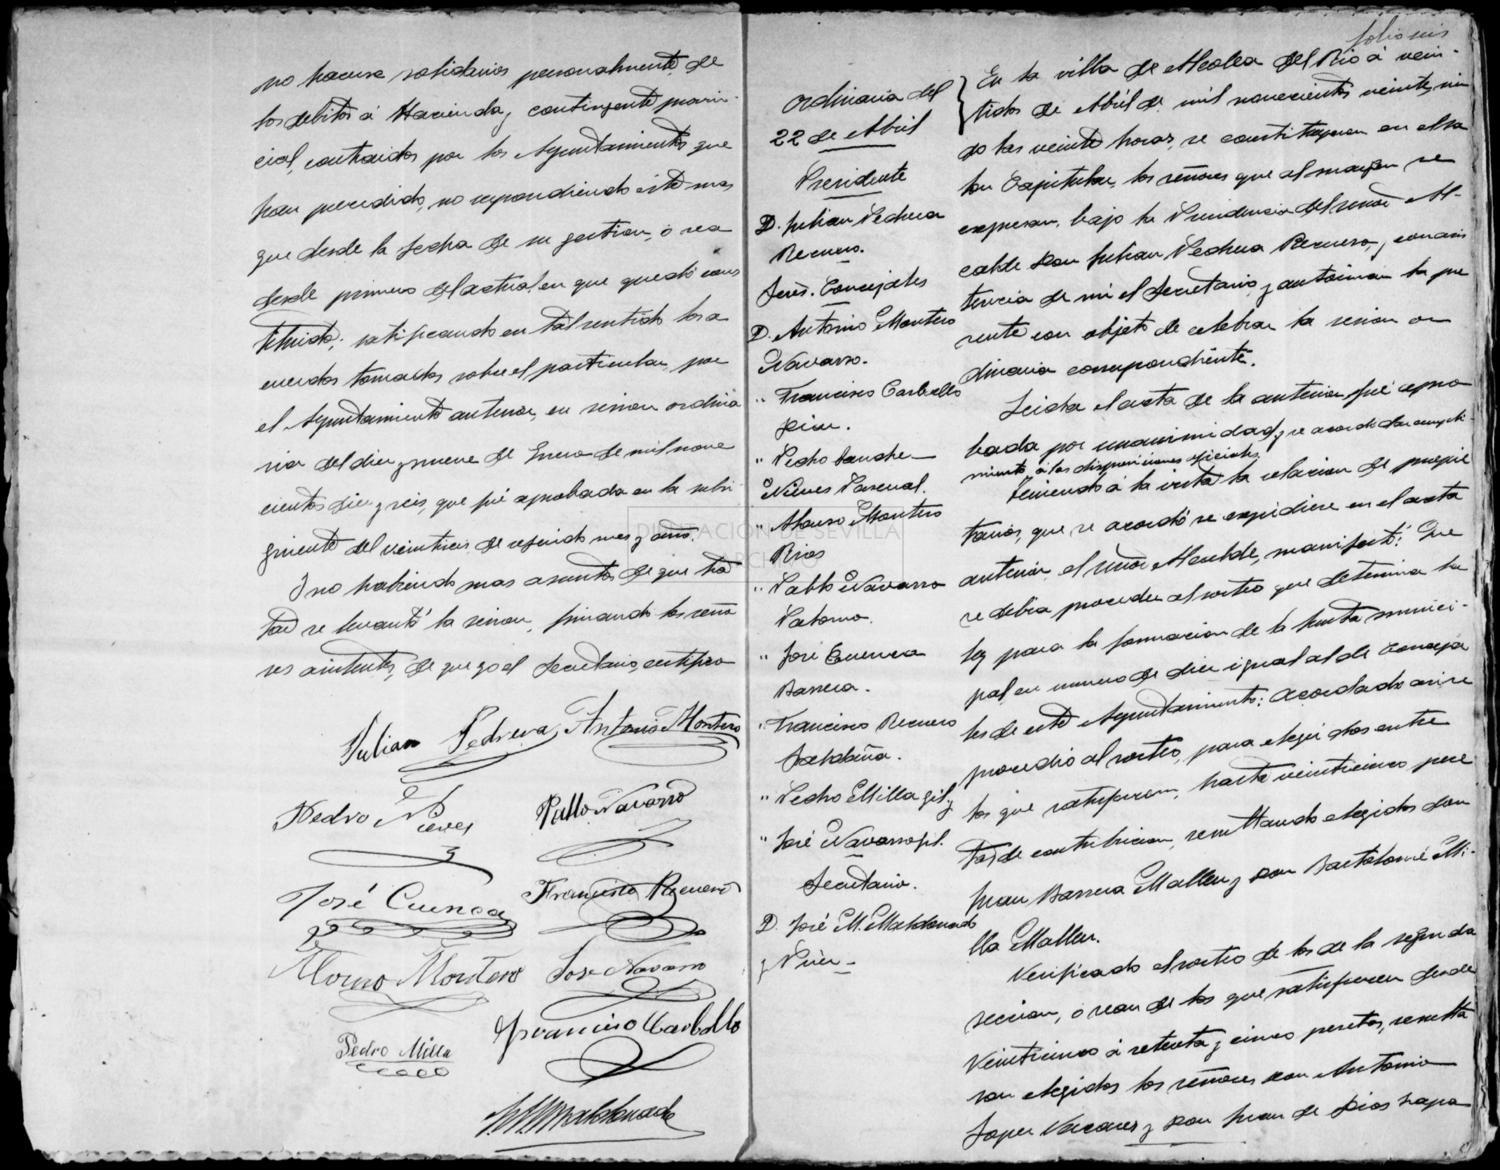 no hacerse solidarios personalmente, de
los debitos á Hacienda, y contingente provin-
cial, contraidos por los Ayuntamientos que
han precedido, no respondiendo este mas
que desde la fecha de su gestion, ó sea
desde primero del actual, en que quedó cons
tituido; ratificando en tal sentido los a
cuerdos tomados sobre el particular, por
el Ayuntamiento anterior, en sesion ordina
ria del diez y nueve de Enero de mil nove
cientos diez y seis, que fué aprobada en la subsi
guiente del veintiseis de referido mes y año.
Y no habiendo mas asuntos de que tra
tar se levantó la sesion, firmando los seño
res asistentes, de que yo el Secretario, certifico
Julian Pedrera Antonio Montero
Pedro Nieves Pablo Navarro
José Cuenca Francisco Recuero
Alonso Montero Jose Navarro
Francisco Carballo
Pedro Milla
J M Maldonado
folio seis
Ordinaria del
22 de Abril
Presidente
D. Julian Pedrera
Recuero.
Sres. Concejales
D. Antonio Montero
Navarro.
" Francisco Carballo
" Pedro Sanche
Nieves Pascual.
" Alonso Montero
Rios
" Pablo Navarro
Palomo.
" José Cuenca
Barrera.
" Francisco Recuero
Saldaña.
" Pedro Milla Gil y
" José Navarro
Secretario.
D. José M. Maldonado
y
En la villa de Alcolea del Rio á vein-
tidos de Abril de mil novecientos veinte, sien
do las veinte horas, se constituyeron en el Sa
lon Capitular, los señores que al margen se
expresan, bajo la Presidencia del señor Al-
calde Don Julian Pedrera Recuero, y con asis
tencia de mi el Secretario, y autorizan la pre
sente con objeto de celebrar la sesion or
dinaria correspondiente.
Leida el acta de la anterior, fué apro
bada por unanimidad, y se acordó dar cumpli-
miento á las disposiciones oficiales.
Teniendo á la vista la relacion de propie
tarios, que se acordó se expidiere en el acta
anterior, el señor Alcalde, manifestó: Que
se debia proceder al sorteo que determina la
ley para la formacion de la Junta munici-
pal en numero de diez igual al de Conceja
les de este Ayuntamiento; acordado asi se
procedió al sorteo, para elegir dos entre
los que satisfacen, hasta veinticinco pese
tas de contribucion, resultando elegidos don
Juan Barrera Mallen y don Bartolomé Mi-
lla Mallen.
Verificado el sorteo de los de la segunda
seccion, ó sean de los que satisfacen desde
veinticinco á setenta y cinco pesetas, resulta
ron elegidos los señores don Antonio
Lopez y don Juan de Dios Zapa
DIPUTACIÓN DE SEVILLA
ARCHIVO